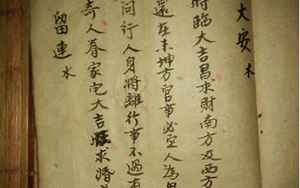 大安 木
時臨大吉昌求財南方及西方
還在未坤方官事必空人為
問行人身將離行事不過有
奇人眷家宅大吉旺求婚
留連 水